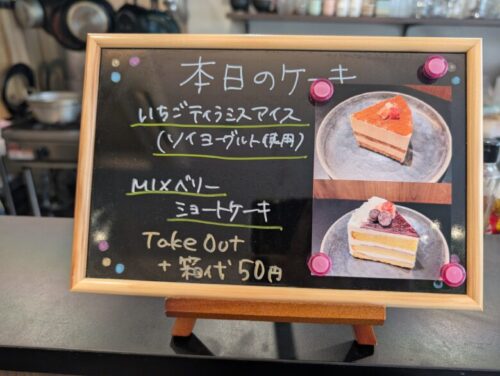 本日のケーキ
いちごティラミスアイス
(ソイヨーグルト使用)
MIXベリー
ショートケーキ
Take Out
+ 箱代 50円